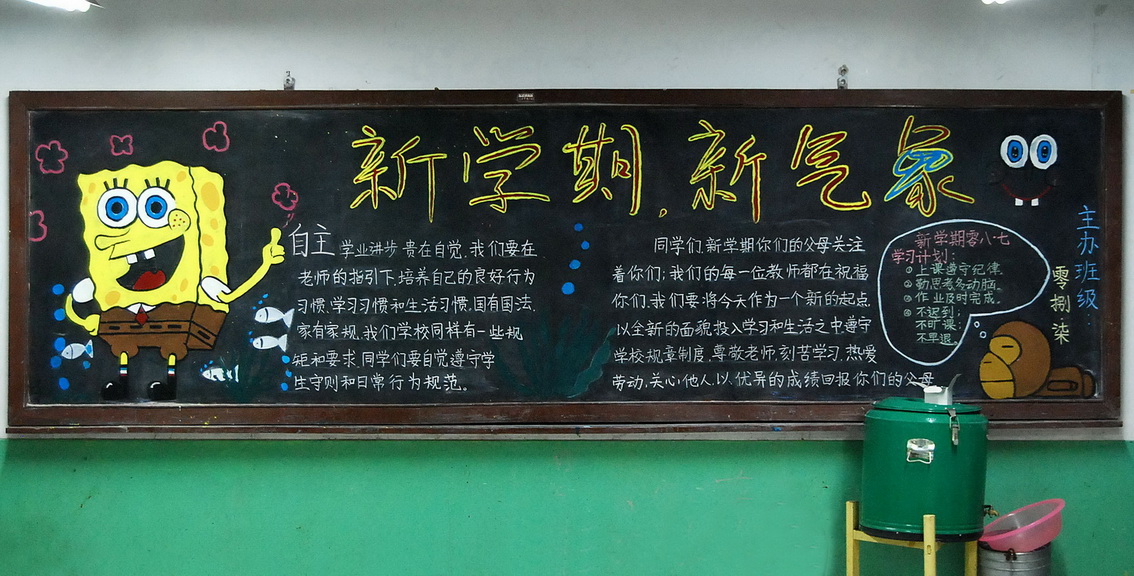 新学期,新气象
自主 学业进步,贵在自觉,我们要在
老师的指引下,培养自己的良好行为
习惯,学习习惯和生活习惯,国有国法,
家有家规,我们学校同样有一些规
矩和要求,同学们要自觉遵守学
生守则和日常行为规范。
同学们,新学期你们的父母关注
着你们;我们的每一位教师都在祝福
你们,我们要将今天作为一个新的起点,
以全新的面貌投入学习和生活之中遵守
学校规章制度,尊敬老师刻苦学习,热爱
劳动,关心他人,以优异的成绩回报你们的父母
新学期零八七
学习计划:
①上课遵守纪律,
②勤思考多动脑。
③作业及时完成。
④不迟到;
不旷课;
不早退。
主办班级:
零捌柒